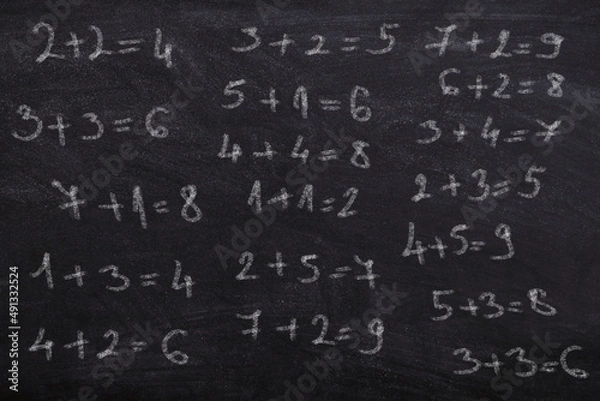 2+2=4
3+3=6
7+1=8
1+3=4
4+2=6
3+2=5
5+1=6
4+4=8
1+1=2
2+5=7
7+2=9
7+2=9
6+2=8
3+4=7
2+3=5
4+5=9
5+3=8
3+3=6
Adobe Stock | #491332524